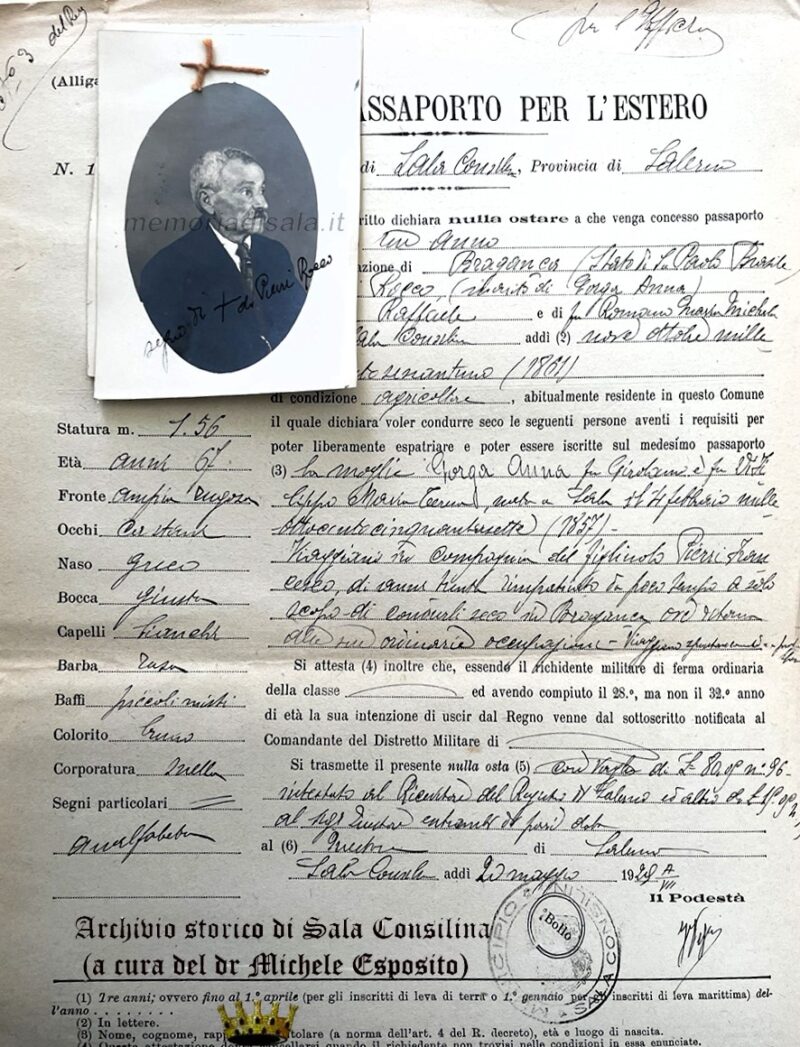 del Rey
per l'Ufficio
(Alliga
ASSAPORTO PER L'ESTERO
N. 1
di Sala Consilina, Provincia di Salerno
ritto dichiara nulla ostare a che venga concesso passaporto
un anno
azione di Bragança (Stato di S. Paolo Brasile
Rocco, (marito di Gorga Anna)
Raffaele e di fu Romano Maria Michela
Sala Consilina addì (2) nove ottobre mille
to sessantuno (1861)
di condizione agricoltore, abitualmente residente in questo Comune
il quale dichiara voler condurre seco le seguenti persone aventi i requisiti per
poter liberamente espatriare e poter essere iscritte sul medesimo passaporto
(3) la moglie Gorga Anna fu Girolamo e fu
Maria Teresa, nata a Sala il 4 febbraio mille
ottocentocinquantasette (1857) -
Viaggiano in compagnia del figliuolo Pierri Fran
cesco, di anni trenta rimpatriato da poco tempo a solo
scopo di condurli seco in Bragança ove ritorna
alle sue ordinarie occupazioni - Viaggiano
Si attesta (4) inoltre che, essendo il richidente militare di ferma ordinaria
della classe ed avendo compiuto il 28.º, ma non il 32.º anno
di età la sua intenzione di uscir dal Regno venne dal sottoscritto notificata al
Comandante del Distretto Militare di
Si trasmette il presente nulla osta (5) con vaglia di L. 80,00 nº 96
intestato al Ricevitore del Registro di Salerno ed altro di L.
al sigr Questore entrambi di pari data
al (6) Questore di Salerno
Sala Consilina addì 20 maggio 1929 A
VII
Il Podestà
memoriadisala.it
segno di + di Pierri Rocco
Statura m. 1.56
Età anni 67
Fronte ampia rugosa
Occhi castani
Naso greco
Bocca giusta
Capelli bianchi
Barba rasa
Baffi piccoli misti
Colorito bruno
Corporatura snella
Segni particolari
analfabeta
Bollo
MUNICIPIO SALA CONSILINA
Archivio storico di Sala Consilina
(a cura del dr Michele Esposito)
(1) Tre anni; ovvero fino al 1.º aprile (per gli inscritti di leva di terra o 1.º gennaio per gli inscritti di leva marittima) del-
l'anno . . . . . . . .
(2) In lettere.
(3) Nome, cognome, rap titolare (a norma dell'art. 4 del R. decreto), età e luogo di nascita.
(4) Questa attestazione cancellarsi quando il richiedente non trovisi nelle condizioni in essa enunciate.